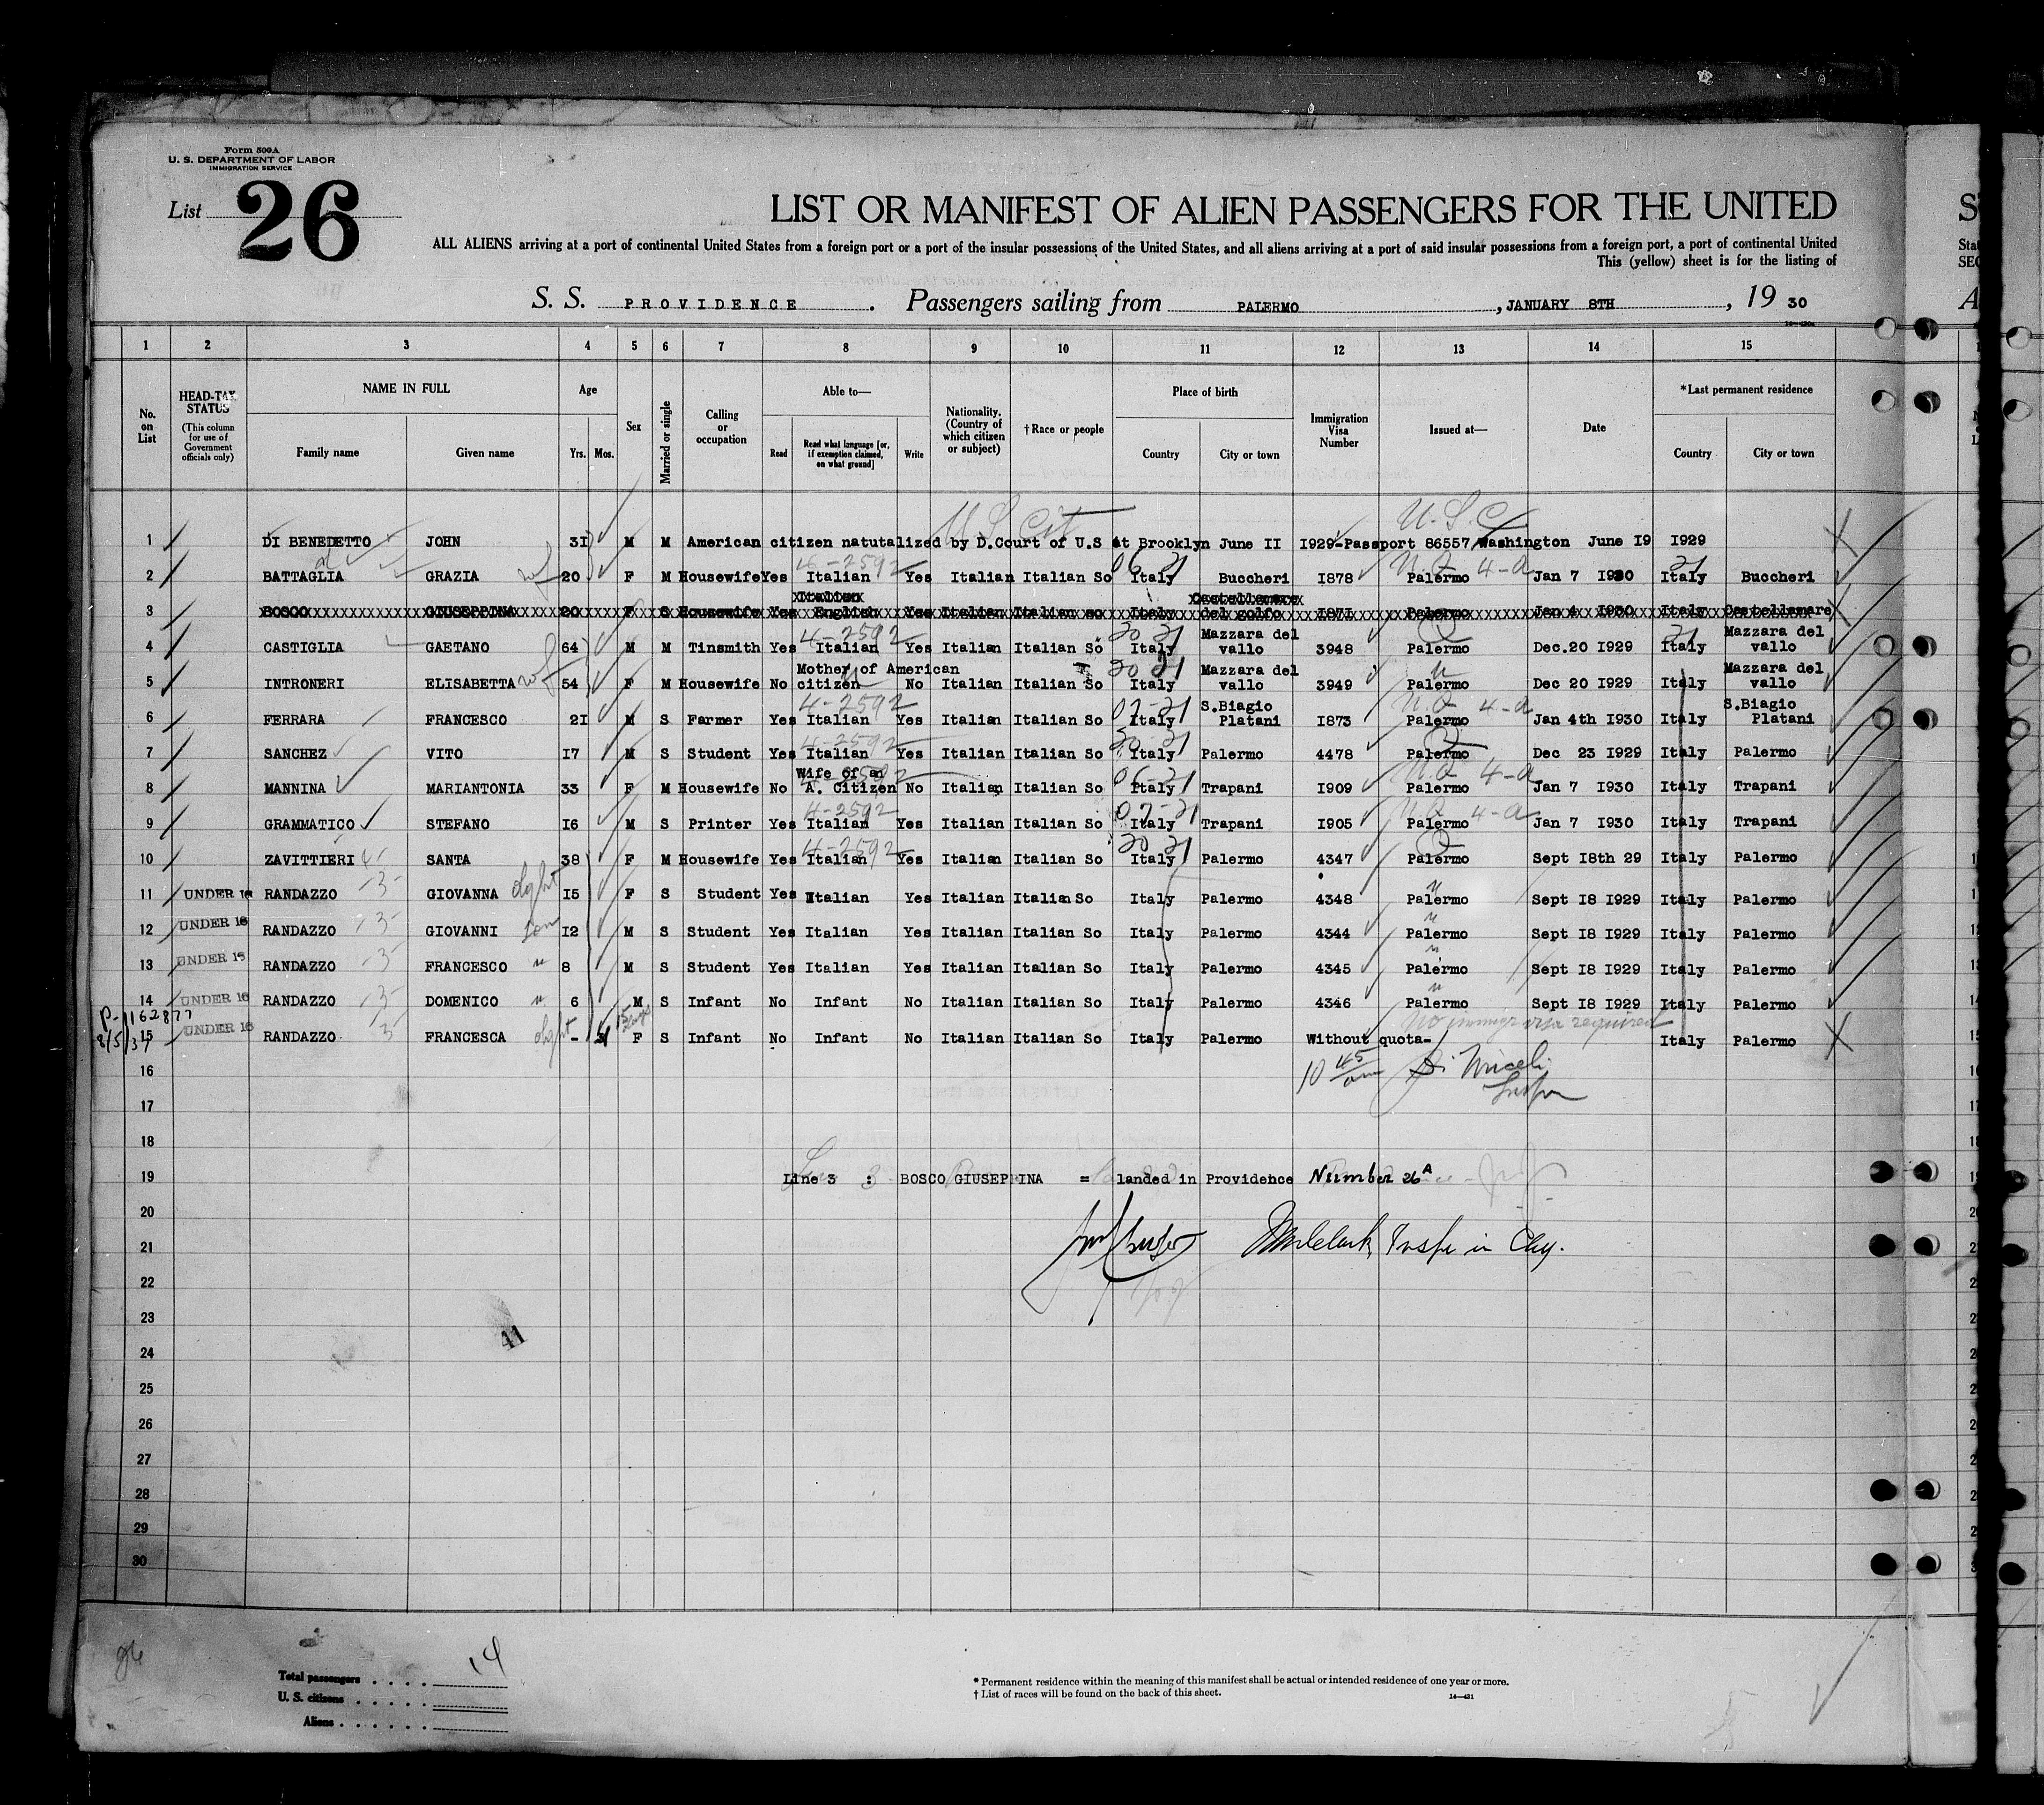 Form 500A
U. S. DEPARTMENT OF LABOR
IMMIGRATION SERVICE
List 26
LIST OR MANIFEST OF ALIEN PASSENGERS FOR THE UNITED
ALL ALIENS arriving at a port of continental United States from a foreign port or a port of the insular possessions of the United States, and all aliens arriving at a port of said insular possessions from a foreign port, a port of continental United
This (yellow) sheet is for the listing of
S. S. PROVIDENCE. Passengers sailing from PALERMO, JANUARY 8TH, 19 30
1 2 3 4 5 6 7 8 9 10 11 12 13 14 15
No. on List
HEAD-TAX STATUS (This column for use of Government officials only)
NAME IN FULL Family name Given name
Age Yrs. Mos.
Sex
Married or single
Calling or occupation
Able to— Read Read what language [or, if exemption claimed, on what ground] Write
Nationality. (Country of which citizen or subject)
†Race or people
Place of birth Country City or town
Immigration Visa Number
Issued at—
Date
*Last permanent residence Country City or town
U.S. Cit U.S.C.
1 DI BENEDETTO JOHN 3I M M American citizen natutalized by D.Court of U.S at Brooklyn June II I929-Passport 86557 Washington June I9 I929
2 BATTAGLIA GRAZIA wf 20 F M Housewife Yes Italian Yes Italian Italian So Italy Buccheri I878 Palermo N.Q 4-a Jan 7 I930 Italy Buccheri
3 BOSCO GIUSEPPINA 20 F S Housewife Yes Italian English Yes Italian Italian so Italy Castellamare del golfo I87I Palermo Jan 4 I930 Italy Castellamare
4 CASTIGLIA GAETANO 64 M M Tinsmith Yes 4-2592 Italian Yes Italian Italian So 20 21 Italy Mazzara del vallo 3948 Q Palermo Dec.20 I929 Italy Mazzara del vallo
5 INTRONERI ELISABETTA wf 54 F M Housewife No Mother of American citizen No Italian Italian So 20 21 Italy Mazzara del vallo 3949 Palermo Dec 20 I929 Italy Mazzara del vallo
6 FERRARA FRANCESCO 2I M S Farmer Yes 4-2592 Italian Yes Italian Italian So Italy S.Biagio Platani I873 N.Q 4-a Palermo Jan 4th I930 Italy S.Biagio Platani
7 SANCHEZ VITO I7 M S Student Yes 4-2592 Italian Yes Italian Italian So Italy Palermo 4478 Q Palermo Dec 23 I929 Italy Palermo
8 MANNINA MARIANTONIA 33 F M Housewife No Wife of an A. Citizen No Italian Italian So Italy Trapani I909 N.Q 4-a Palermo Jan 7 I930 Italy Trapani
9 GRAMMATICO STEFANO I6 M S Printer Yes 4-2592 Italian Yes Italian Italian So Italy Trapani I905 N.Q 4-a Palermo Jan 7 I930 Italy Trapani
10 ZAVITTIERI SANTA 38 F M Housewife Yes 4-2592 Italian Yes Italian Italian So 20 21 Italy Palermo 4347 Q Palermo Sept I8th 29 Italy Palermo
11 UNDER 16 RANDAZZO -3- GIOVANNA dght I5 F S Student Yes Italian Yes Italian Italian So Italy Palermo 4348 Palermo Sept I8 I929 Italy Palermo
12 UNDER 16 RANDAZZO -3- GIOVANNI son I2 M S Student Yes Italian Yes Italian Italian So Italy Palermo 4344 Palermo Sept I8 I929 Italy Palermo
13 UNDER 16 RANDAZZO -3- FRANCESCO " 8 M S Student Yes Italian Yes Italian Italian So Italy Palermo 4345 Palermo Sept I8 I929 Italy Palermo
14 UNDER 16 RANDAZZO -3- DOMENICO " 6 M S Infant No Infant No Italian Italian So Italy Palermo 4346 Palermo Sept I8 I929 Italy Palermo
P-162877
8/5/31
No immigr visa required
15 UNDER 16 RANDAZZO -3- FRANCESCA dght - 15 days F S Infant No Infant No Italian Italian So Italy Palermo Without quota- Italy Palermo
16 10 45 am
17
18
19 Line 3 : BOSCO GIUSEPPINA = landed in Providence Number 26A
20
21 Inspr in Chg.
22
23
41
24
25
26
27
28
29
30
Total passengers . . . . 14
U. S. citizens . . . . .
Aliens . . . . . .
* Permanent residence within the meaning of this manifest shall be actual or intended residence of one year or more.
† List of races will be found on the back of this sheet.
14—431